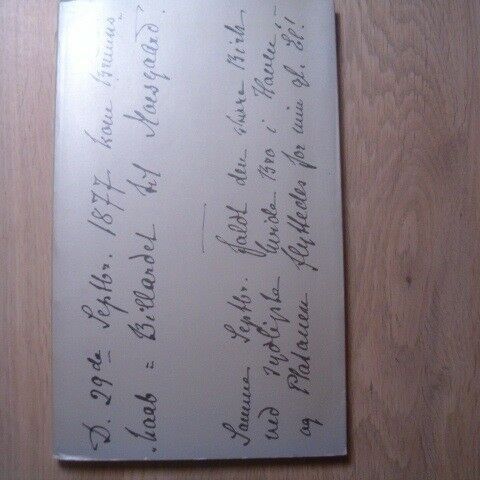 D. 29de Septbr. 1877 kom Brunns
haab = Billardet til Moesgaard.
Samme Septbr. faldt den store Birk
ved sydligste hvide Bro i Haven
og Platanen flyttedes for min gl. El!